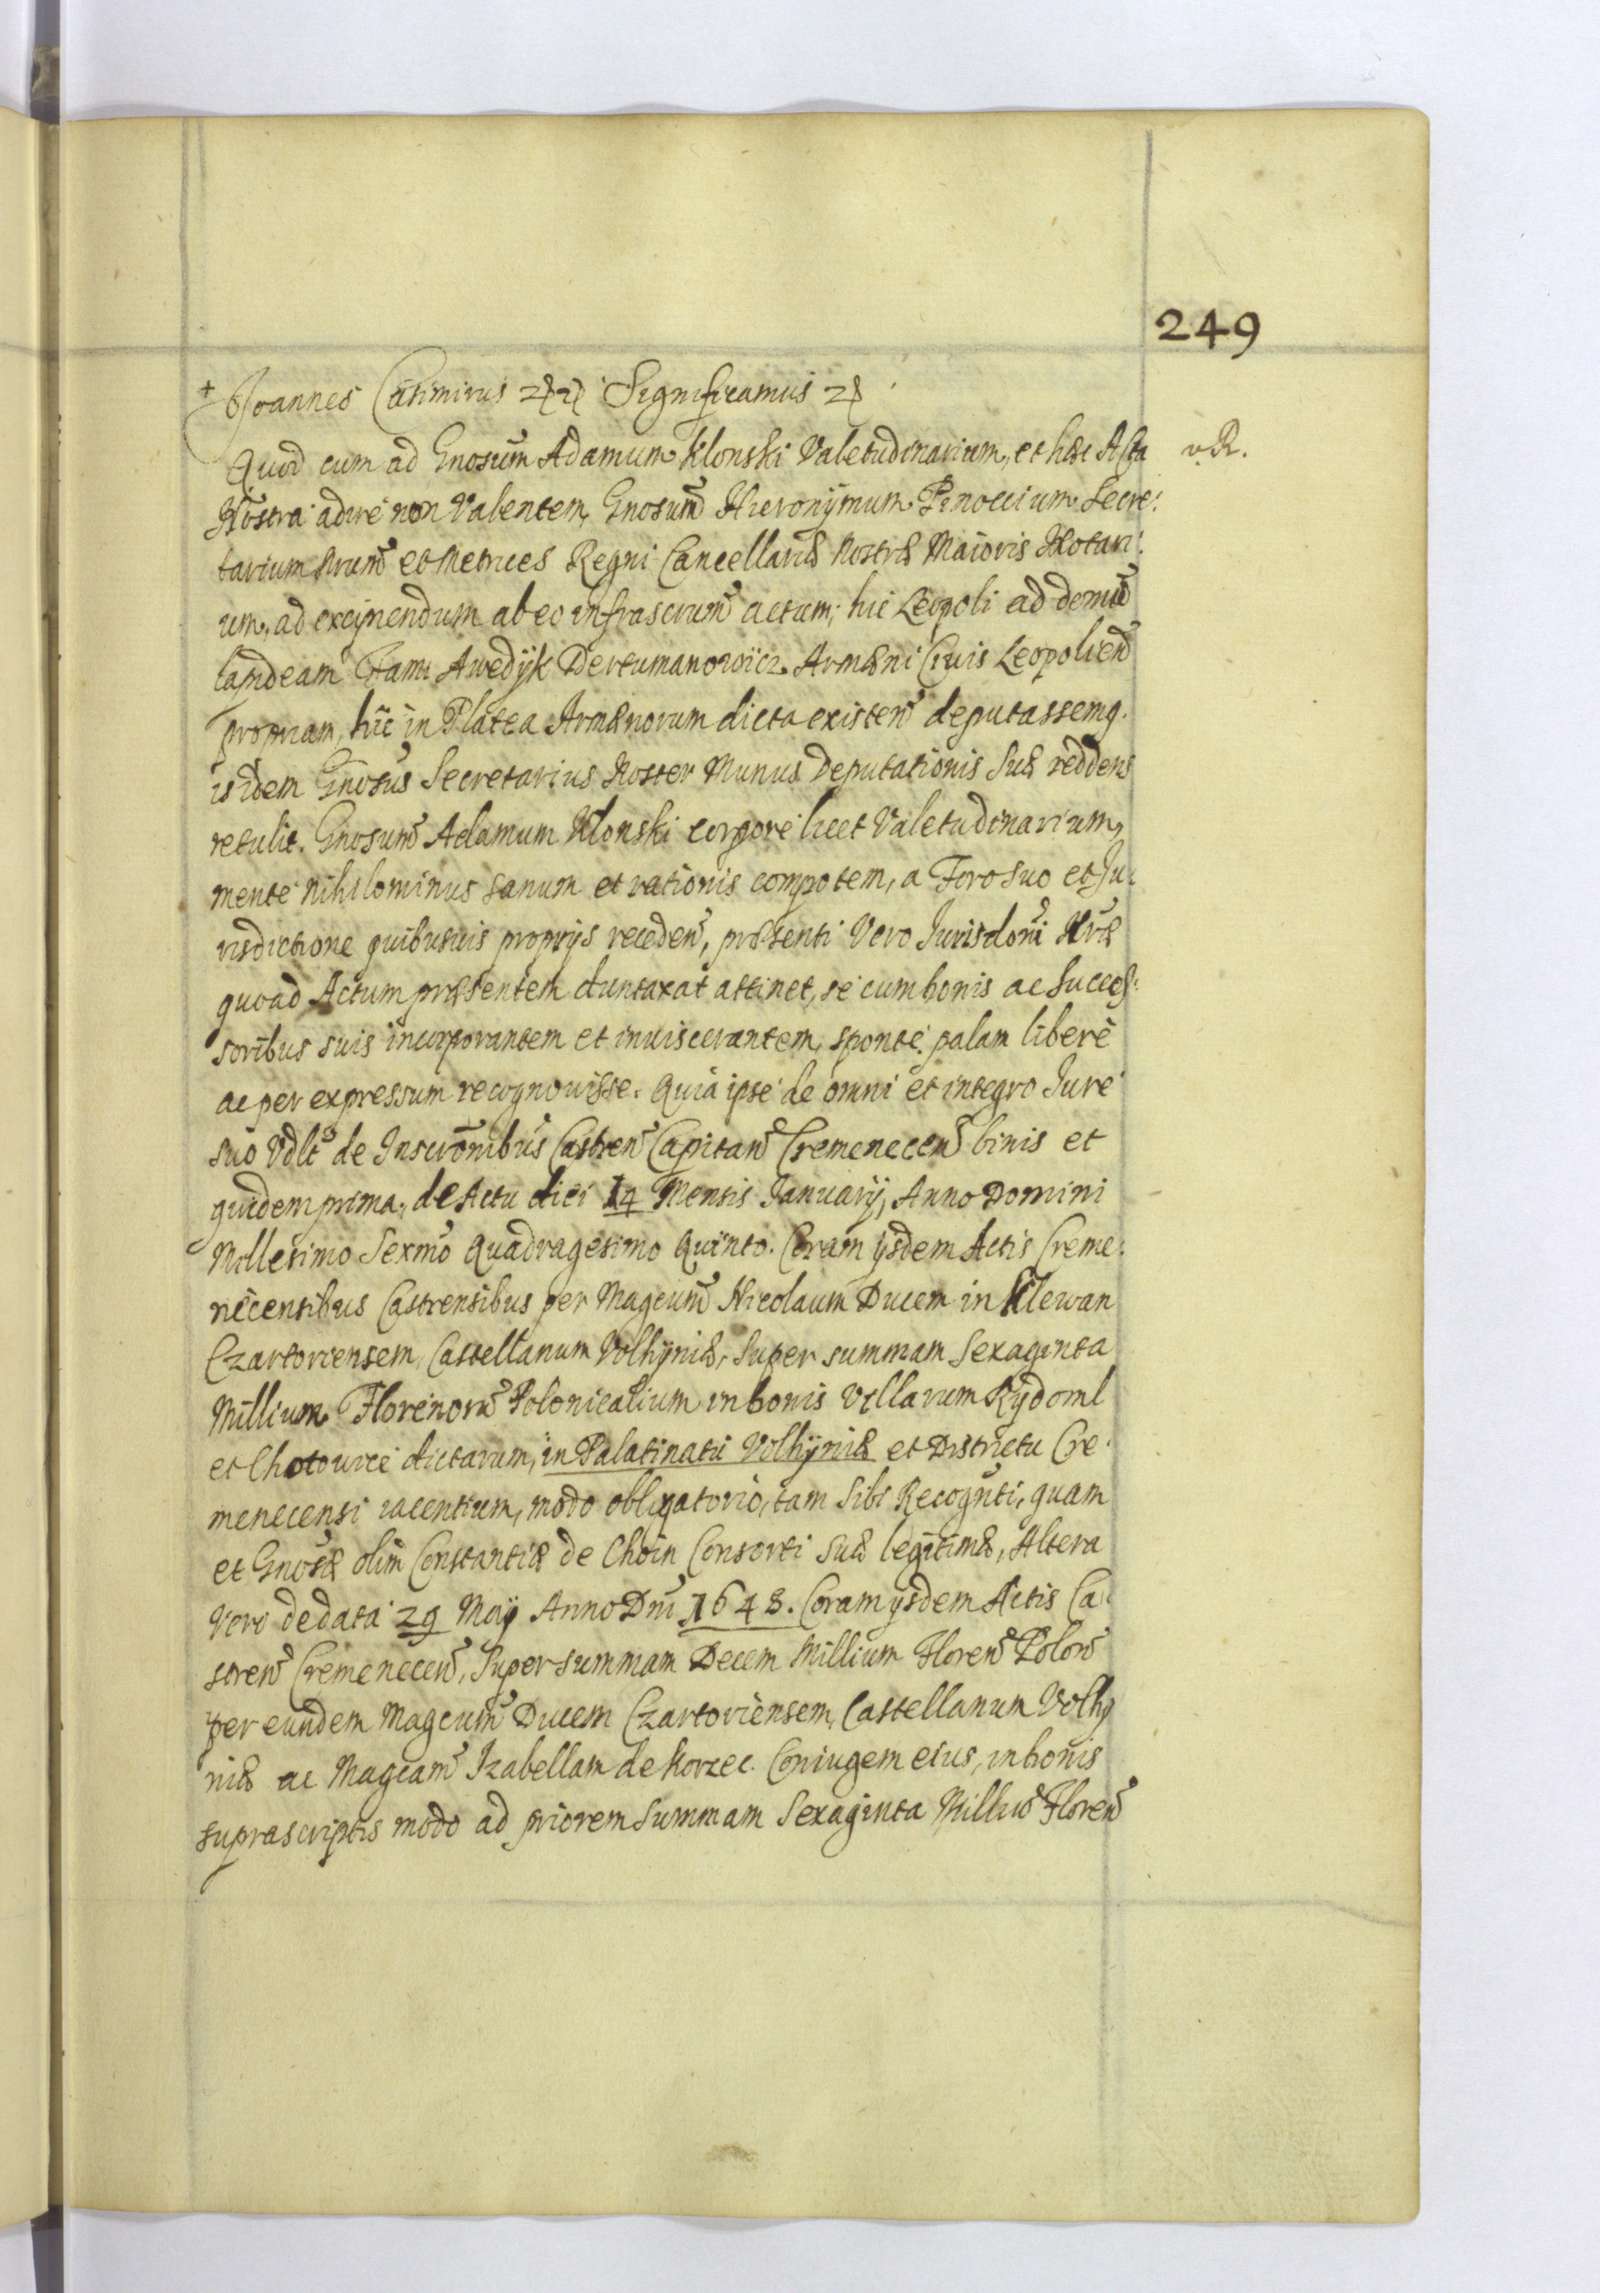 249
+ Joannes Casimirus Significamus
Quod cum ad Gnosum Adamum Klonski Valetudinarium, et hæc Acta v. R.
Nostra adire non Valentem, Gnosum Hieronÿmum Pinoccium Secre:
tarium Nrum et Metrices Regni Cancellariæ Nostræ Maioris Notari:
um, ad excipiendum ab eo infrascrum actum, hic Leopoli ad domu
lapideam Fam: Awedÿk Dertumanowicz Armæni Ciuis Leopolien
propriam, hic in Platea Armænorum dicta existen deputassemq.
is idem Gnosus Secretarius Noster Munus Deputationis Suæ reddens
retulit. Gnosum Adamum Klonski corpore licet Valetudinarium,
mente nihilominus sanum et rationis compotem, a Foro suo et Ju:
risdictione quibusuis proprÿs receden, præsenti Vero Jurisdoni Nræ
quoad Actum præsentem duntaxat attinet, se cum bonis ac Succes:
soribus suis incorporantem et inuiscerantem, sponte palam libere
ac per expressum recognouisse. Quia ipse de omni et integro Jure
suo Vdlt de Inscronibus Castren Capitan Cremenecen binis et
quidem prima, de Actu diei 14 Mensis Januarÿ, Anno Domini
Millesimo Sexmo Quadragesimo Quinto. Coram ÿsdem Actis Creme:
necensibus Castrensibus per Magcum Nicolaum Ducem in Klewan
Czartoriensem, Castellanum Volhÿniæ, Super summam Sexaginta
Millium Florenor Polonicalium in bonis Villarum Rÿdoml
et Chotowce dictarum, in Palatinatu Volhÿniæ et Districtu Cre:
menecensi iacentium, modo obligatorio, tam Sibi Recognti, quam
et Gnosæ olim Constantiæ de Choin Consorti Suæ legitimæ, Altera
Vero de data 29 Maÿ Anno Dni 1648. Coram ÿsdem Actis Ca:
stren Cremenecen, Super summam Decem Millium Floren Polon
per eundem Magcum Ducem Czartoriensem, Castellanum Volhÿ
niæ ac Magcam Izabellam de Korzec Coniugem eius, in bonis
suprascriptis modo ad priorem Summam Sexaginta Milliu Floren